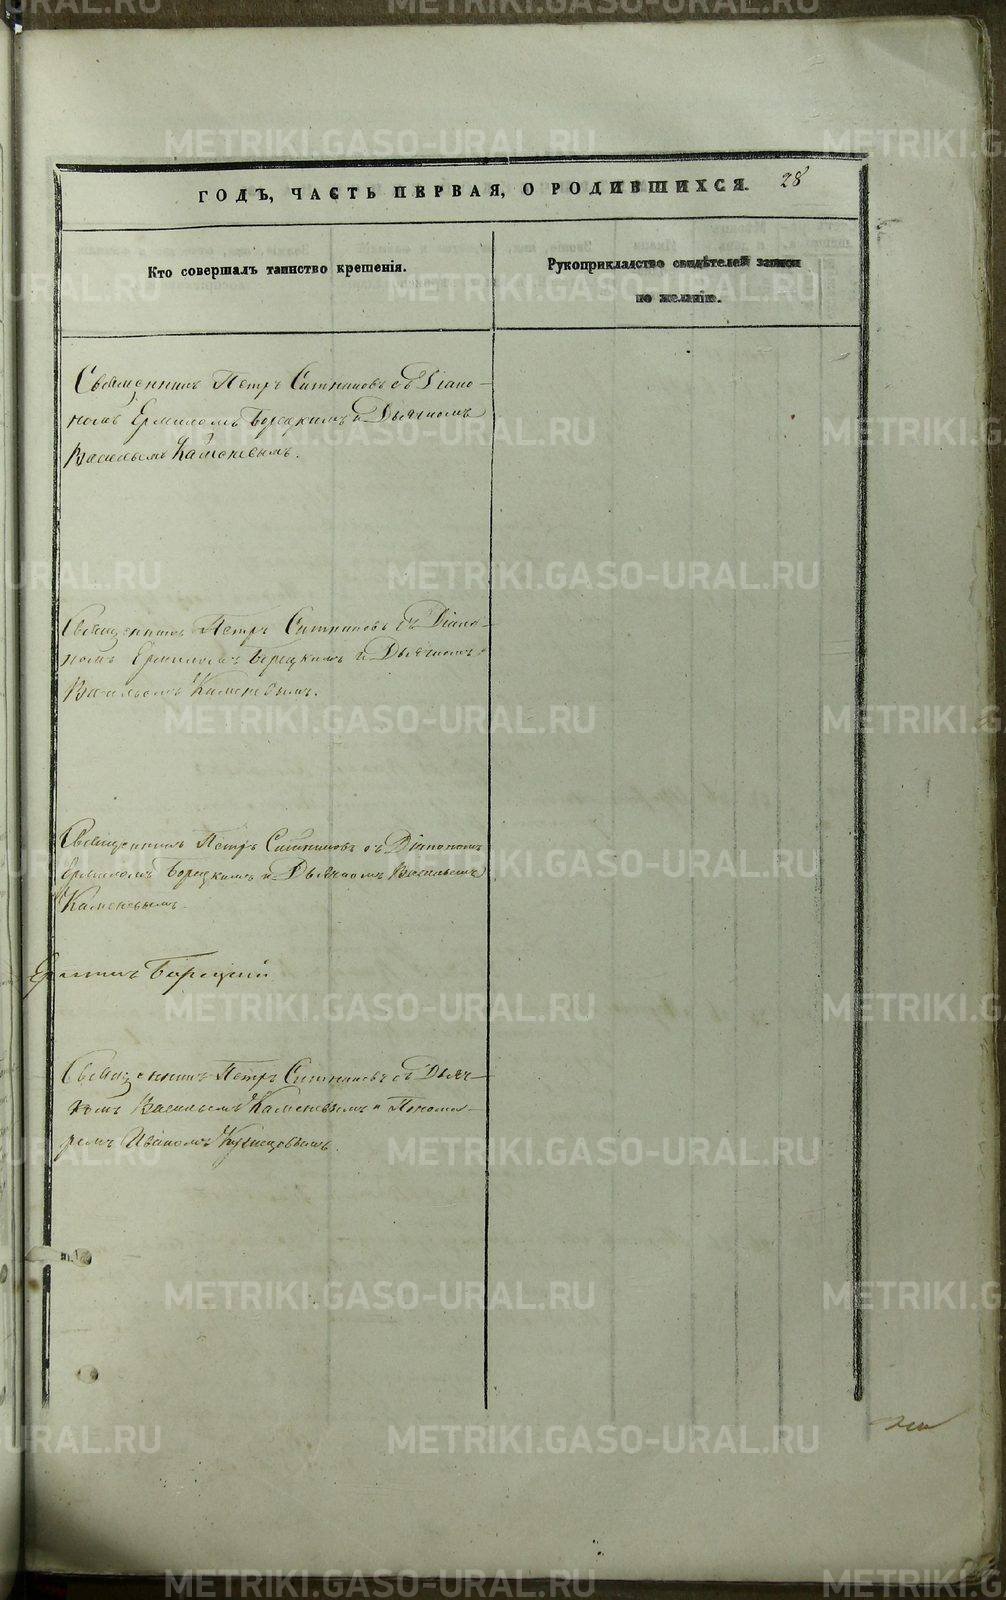 ГОДЪ, ЧАСТЬ ПЕРВАЯ, О РОДИВШИХСЯ. 28
Кто совершалъ таинство крещенія.
Рукоприкладство свидѣтелей записи
по желанію.
Священникъ Петръ Ситниковъ съ Діако-
номъ Ермиломъ Борецкимъ и Дьячкомъ
Васильемъ Каменевымъ.
Священникъ Петръ Ситниковъ съ Діако-
номъ Ермиломъ Борецкимъ и Дьячкомъ
Васильемъ Каменевымъ.
Священникъ Петръ Ситниковъ съ Діакономъ
Ермиломъ Борецкимъ и Дьячкомъ Васильемъ
Каменевымъ.
Священникъ Петръ Ситниковъ съ Дьяч-
комъ Васильемъ Каменевымъ и Понома-
ремъ Иваномъ Кузнецовымъ.
METRIKI.GASO-URAL.RU